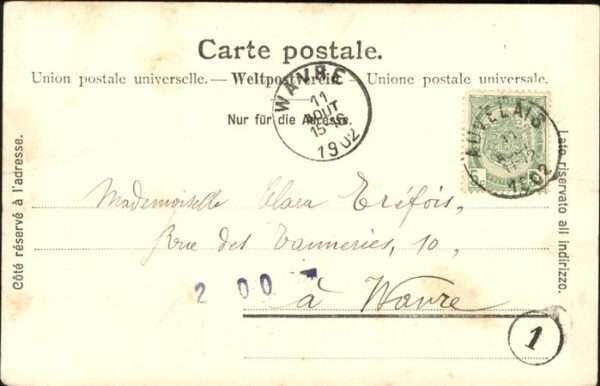 Carte postale.
Union postale universelle. — Weltpostverein — Unione postale universale.
Nur für die Adresse.
WAVRE
11
AOUT
15-16
1902
AUVELAIS
11
1902
Côté réservé à l'adresse.
Lato riservato all indirizzo.
Mademoiselle Clara Tréfois,
Rue des Tanneries, 10,
à Wavre
2 00
1